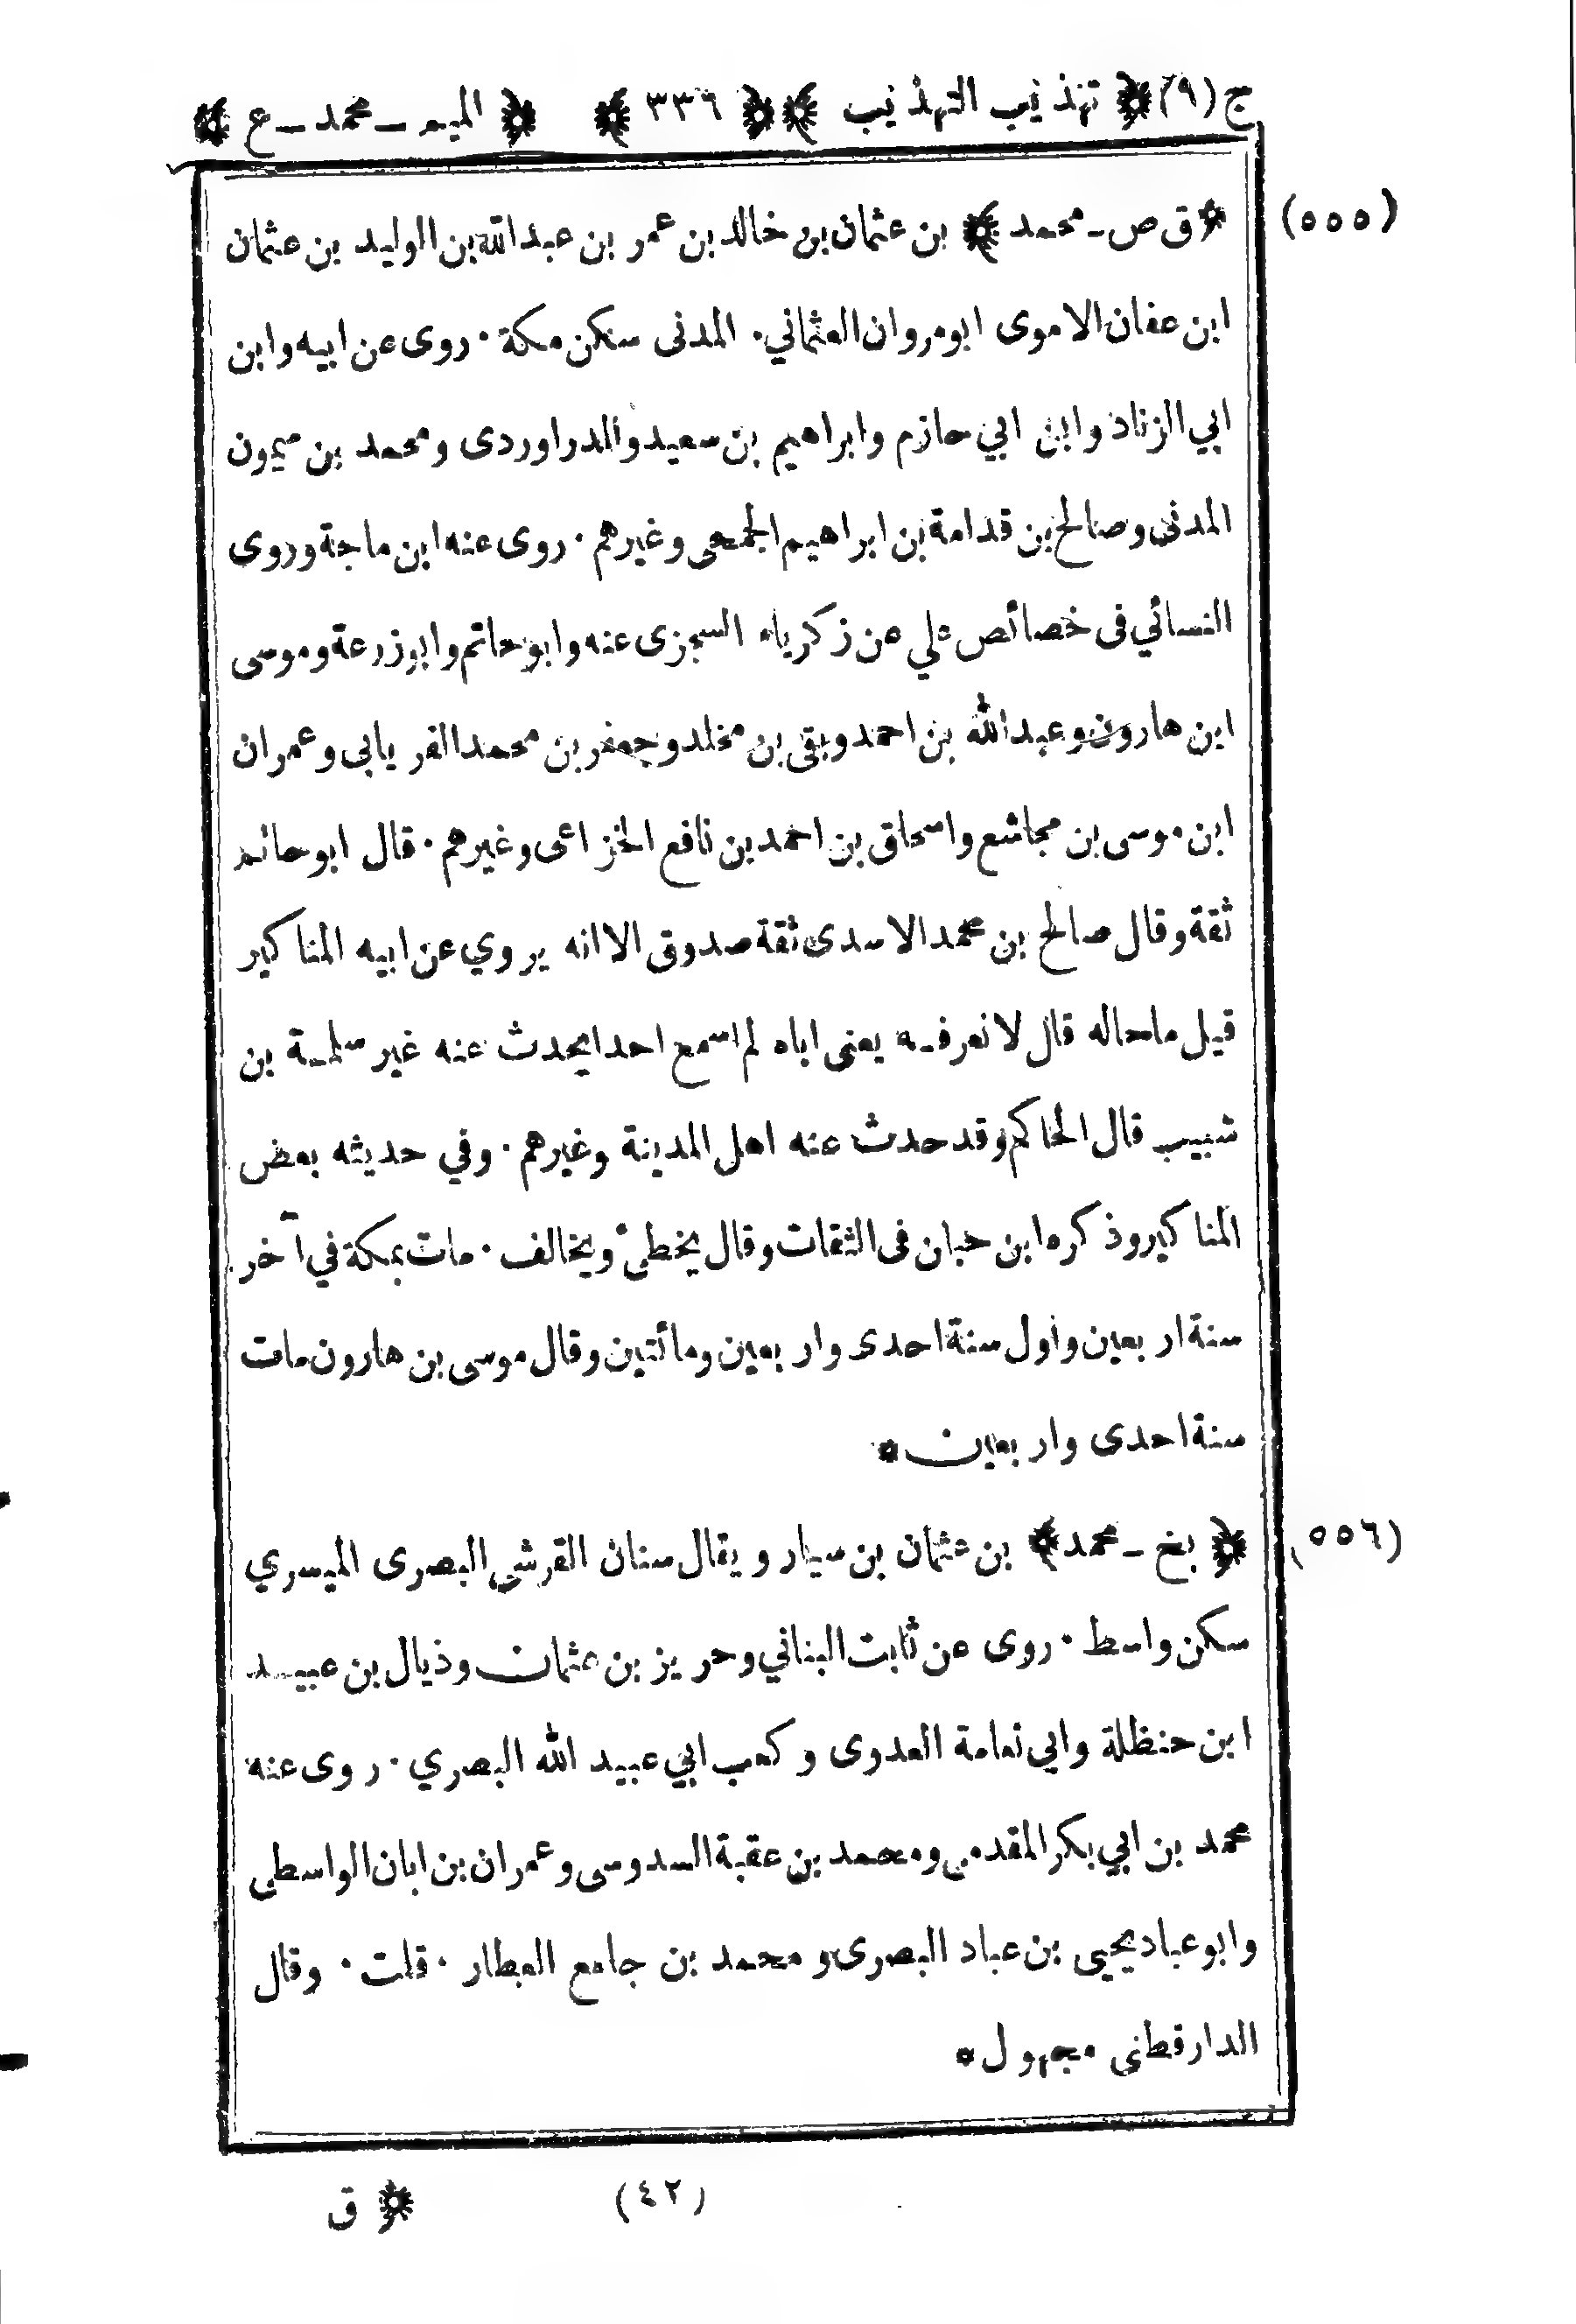 ج (٩) ﴿ تهذيب التهذيب ﴾ ﴿ ٣٣٦ ﴾ ﴿ الميم - محمد - ع ﴾
(٥٥٥) ﴿ ق ص - محمد ﴾ بن عثمان بن خالد بن عمر بن عبد الله بن الوليد بن عثمان
ابن عفان الاموى ابو مروان العثماني. المدنى سكن مكة. روى عن ابيه وابن
ابي الزناد وابن ابي حازم وابراهيم بن سعيد والدراوردى ومحمد بن ميمون
المدني وصالح بن قدامة بن ابراهيم الجمحى وغيرهم. روى عنه ابن ماجة وروى
النسائي فى خصائص علي عن زكرياء السجزى عنه وابو حاتم وابوزرعة وموسى
ابن هارون وعبد الله بن احمد وبقى بن مخلد وجعفر بن محمد الفريابى وعمران
ابن موسى بن مجاشع واسحاق بن احمد بن نافع الخزاعى وغيرهم. قال ابو حاتم
ثقة وقال صالح بن محمد الاسدى ثقة صدوق الا انه يروي عن ابيه المناكير
قيل ما حاله قال لا نعرفه يعنى اباه لم اسمع احدا يحدث عنه غير سلمة بن
شبيب قال الحاكم وقد حدث عنه اهل المدينة وغيرهم. وفي حديثه بعض
المناكير وذكره ابن حبان فى الثقات وقال يخطئ ويخالف. مات بمكة في آخر
سنة اربعين واول سنة احدى واربعين ومائتين وقال موسى بن هارون مات
سنة احدى واربعين *
(٥٥٦) ﴿ بخ - محمد ﴾ بن عثمان بن سيار ويقال سنان القرشي البصرى الميسري
سكن واسط. روى عن ثابت البناني وحريز بن عثمان وذيال بن عبيد
ابن حنظلة وابي نعامة العدوى وكعب ابي عبيد الله البصري. روى عنه
محمد بن ابي بكر المقدمى ومحمد بن عقبة السدوسى وعمران بن ابان الواسطى
وابو عباد يحيى بن عباد البصرى ومحمد بن جامع العطار. قلت. وقال
الدارقطنى مجهول *
(٤٢) ﴿ ق